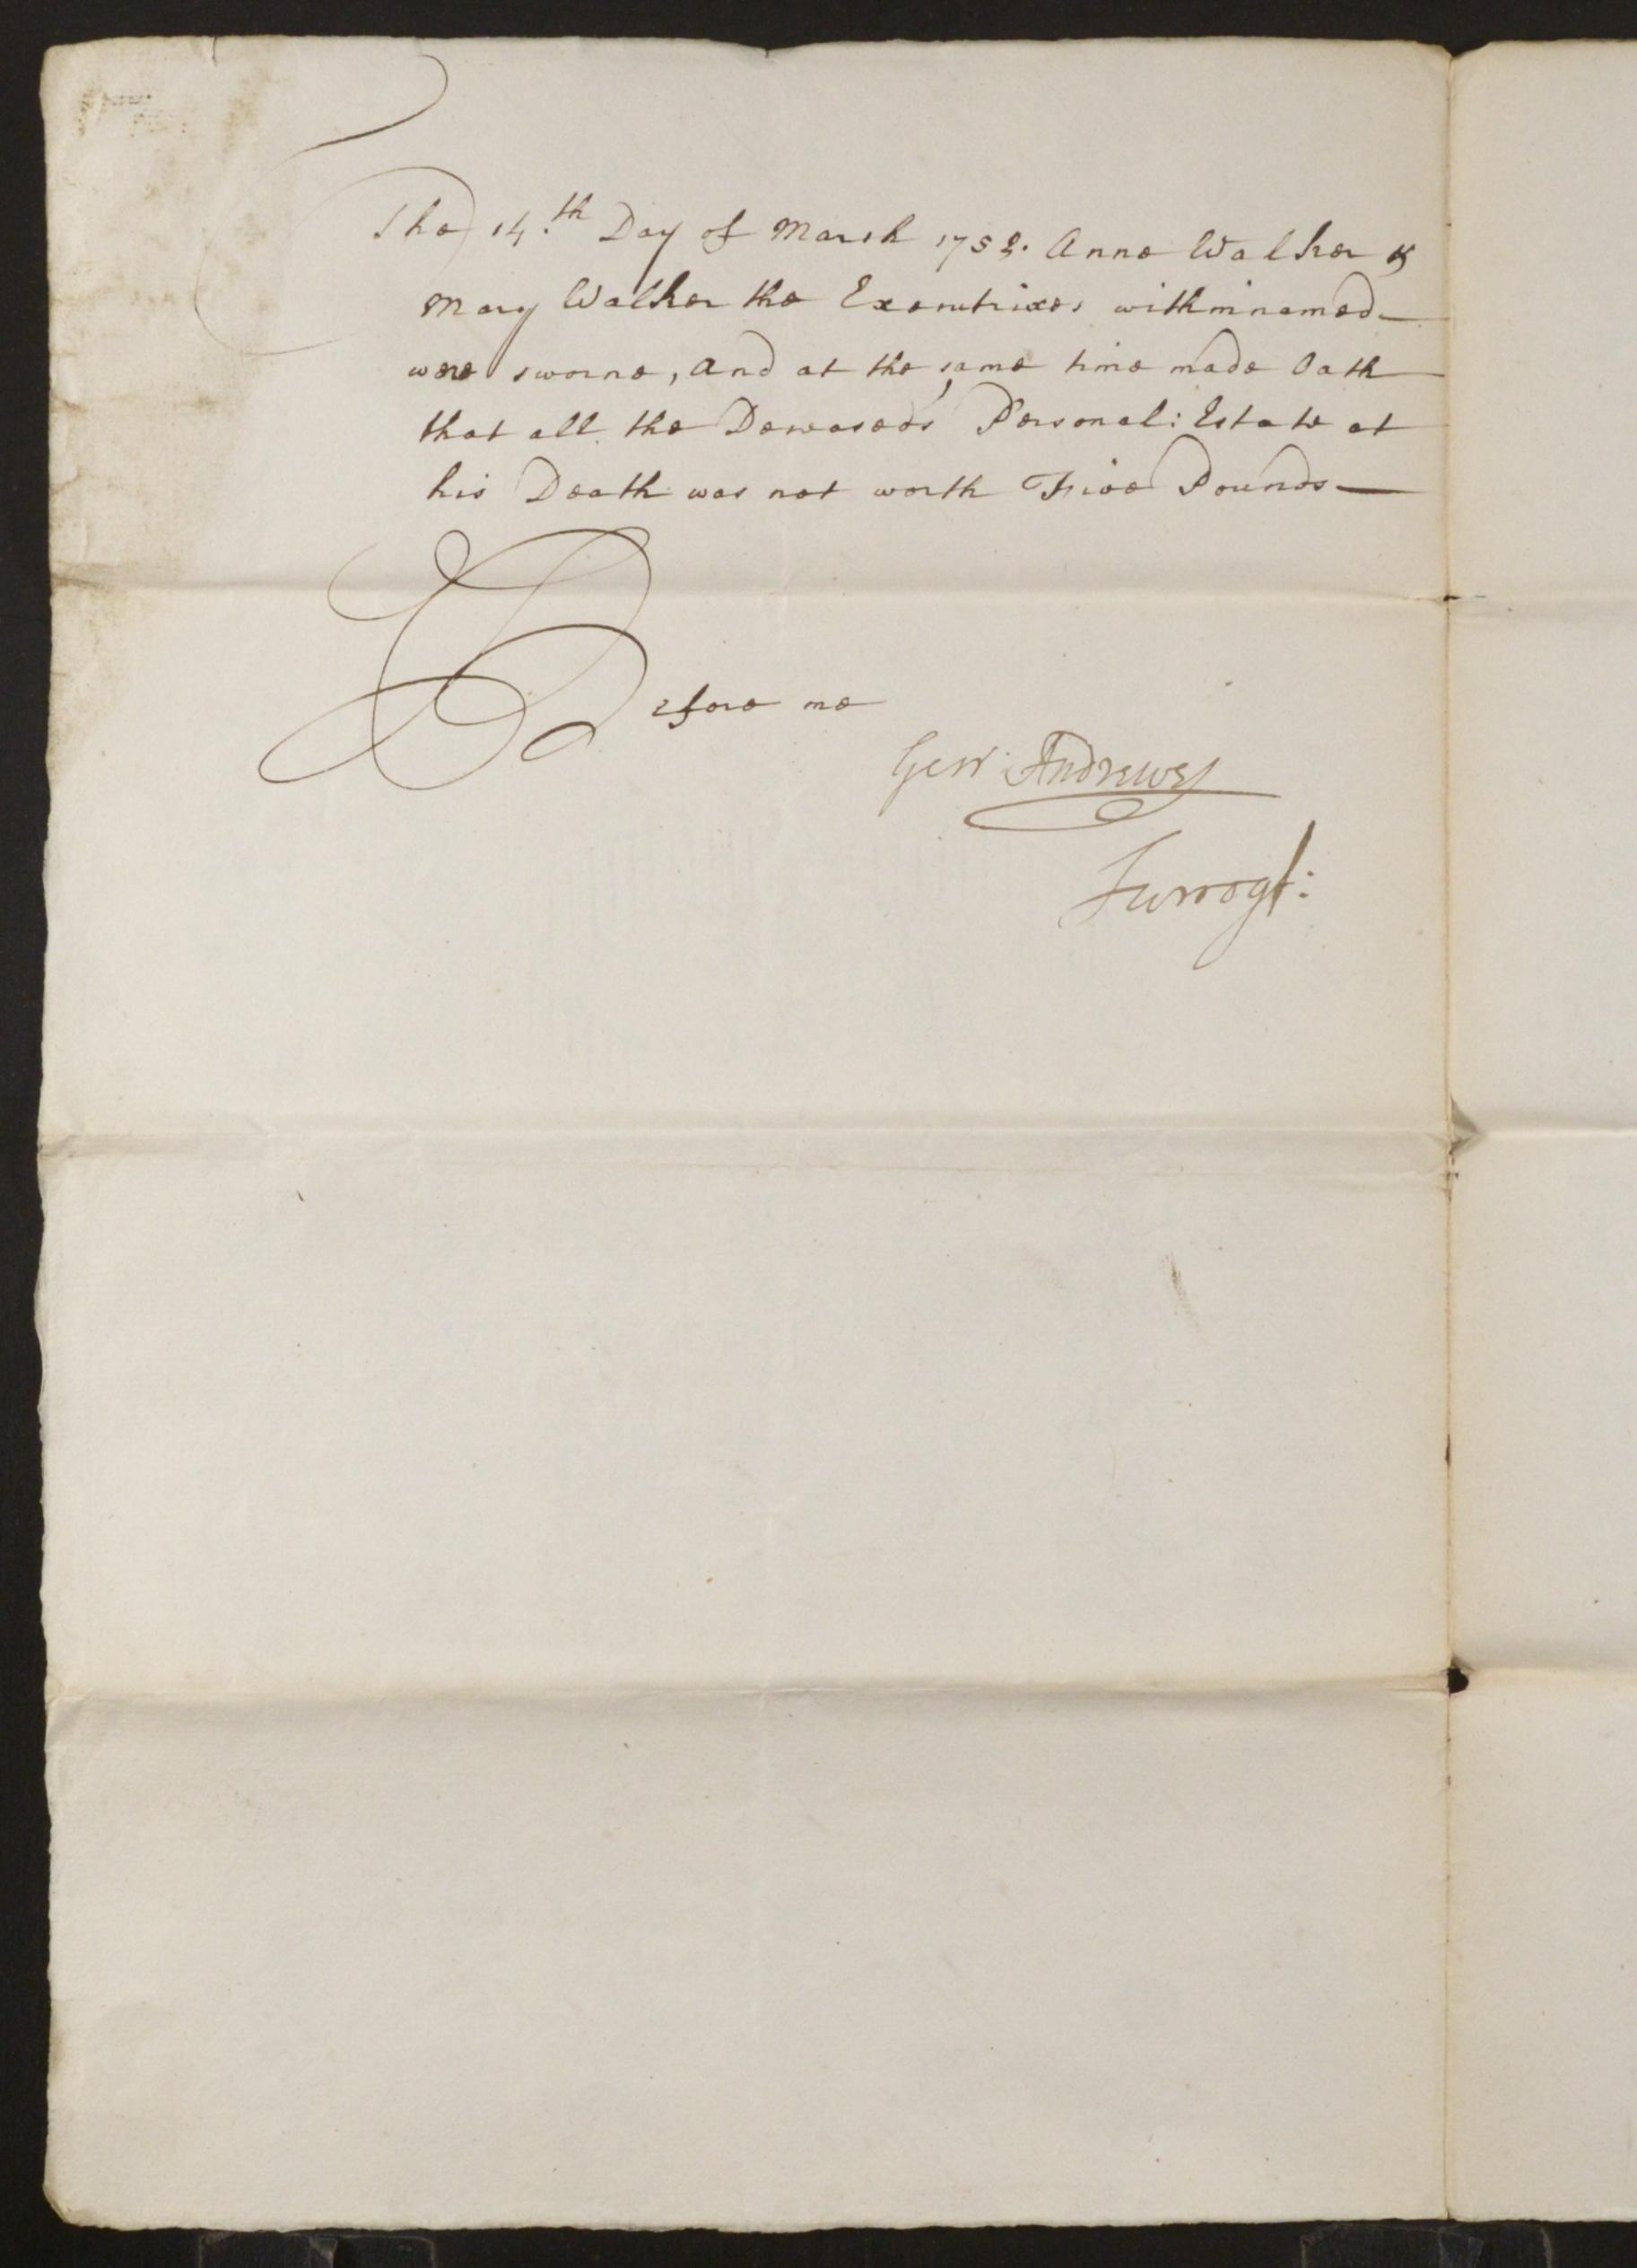 The 14.th Day of March 1752. Anne Walker &
Mary Walker the Executrixes within named
were sworne, and at the same time made Oath
that all the Deceaseds Personal: Estate at
his Death was not worth Five Pounds
Before me
Gerv: Andrewes
Surrogt: